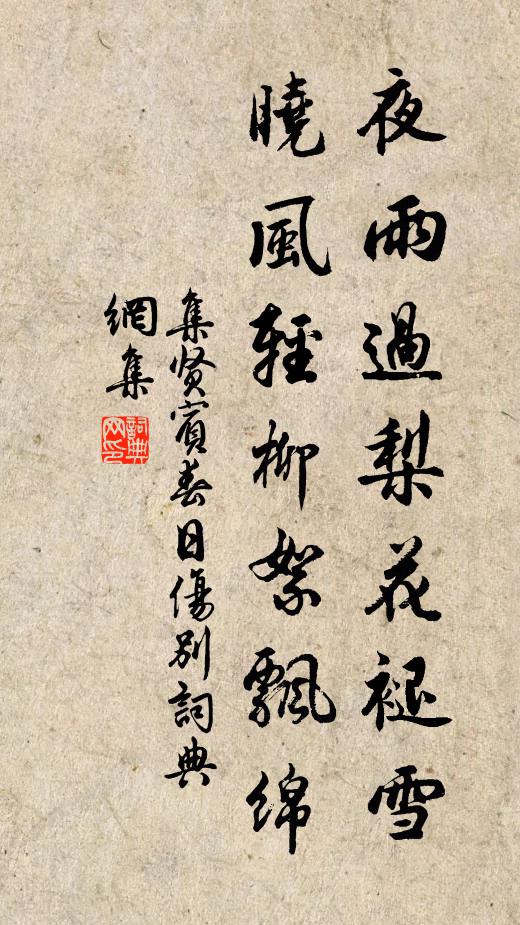 夜雨過梨花褪雪
曉風輕柳絮飄綿
集贤賓春日傷别詞典
網集
詞典
网印